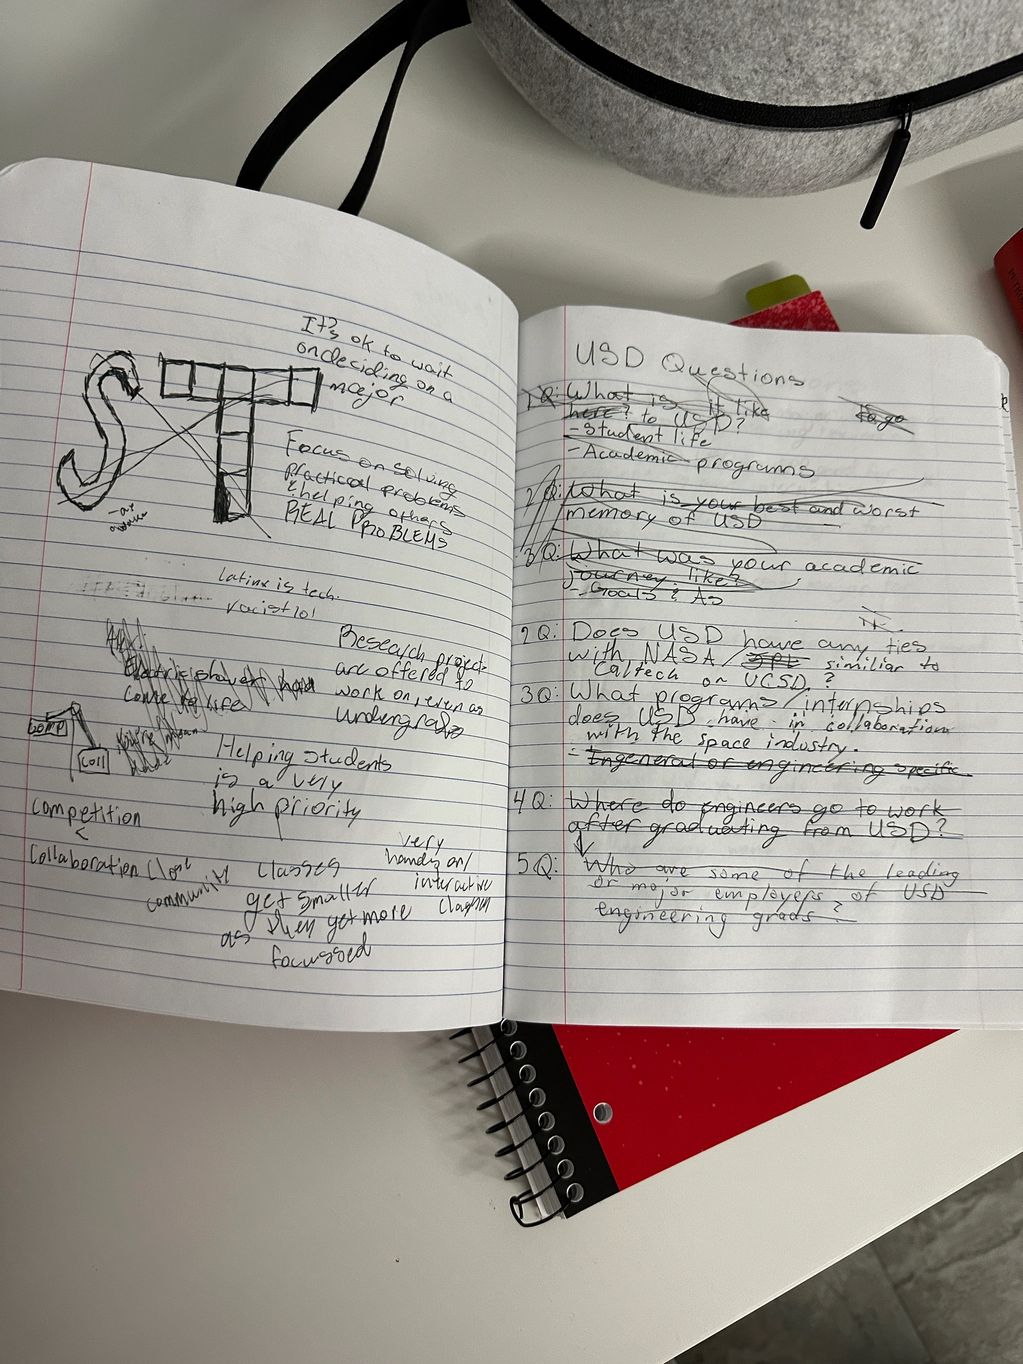 It's ok to wait
on deciding on a
major
Focus on solving
practical problems
& helping others
REAL PROBLEMS
Latinx is tech.
racist lol
Research projects
are offered to
work on, even as
undergrads
Electric shaver
come to life
comp
coll
Helping students
is a very
high priority
Competition
<
Collaboration
Close
community
classes
get smaller
as they get more
focussed
very
hands on/
interactive
USD Questions
1Q: What is it like
here? to USD?
- Student life
- Academic programs
To go
2Q: What is your best and worst
memory of USD
3Q: What was your academic
journey like?
- Goals & As
2Q: Does USD have any ties
with NASA / JPL similiar to
Caltech or UCSD ?
3Q: What programs/internships
does USD have in collaboration
with the space industry.
- Ingeneral or engineering specific.
4Q: Where do engineers go to work
after graduating from USD?
5Q: Who are some of the leading
or major employers of USD
engineering grads?